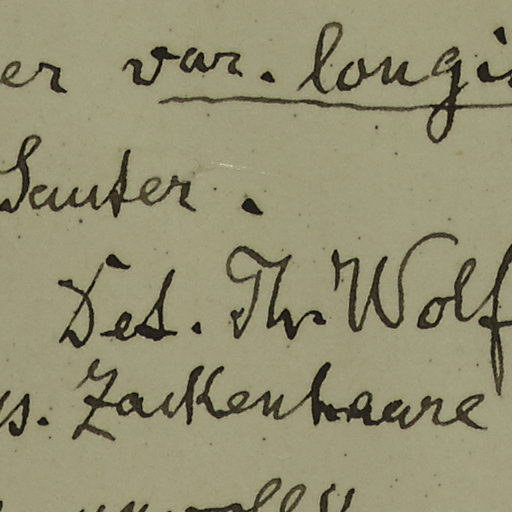 er var. longi
Sauter.
Det. Th. Wolf
s. Zackenhaare